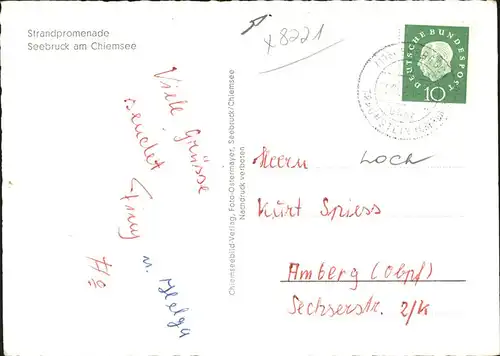 Strandpromenade
Seebruck am Chiemsee
x 8221
DEUTSCHE BUNDESPOST
10
Viele Grüsse
sendet
u. Helga
Chiemseebild-Verlag, Foto-Ostermayer, Seebruck/Chiemsee
Nachdruck verboten
Herrn
LOCH
Kurt Spiess
Amberg (Obpf)
Sechserstr. 2/II